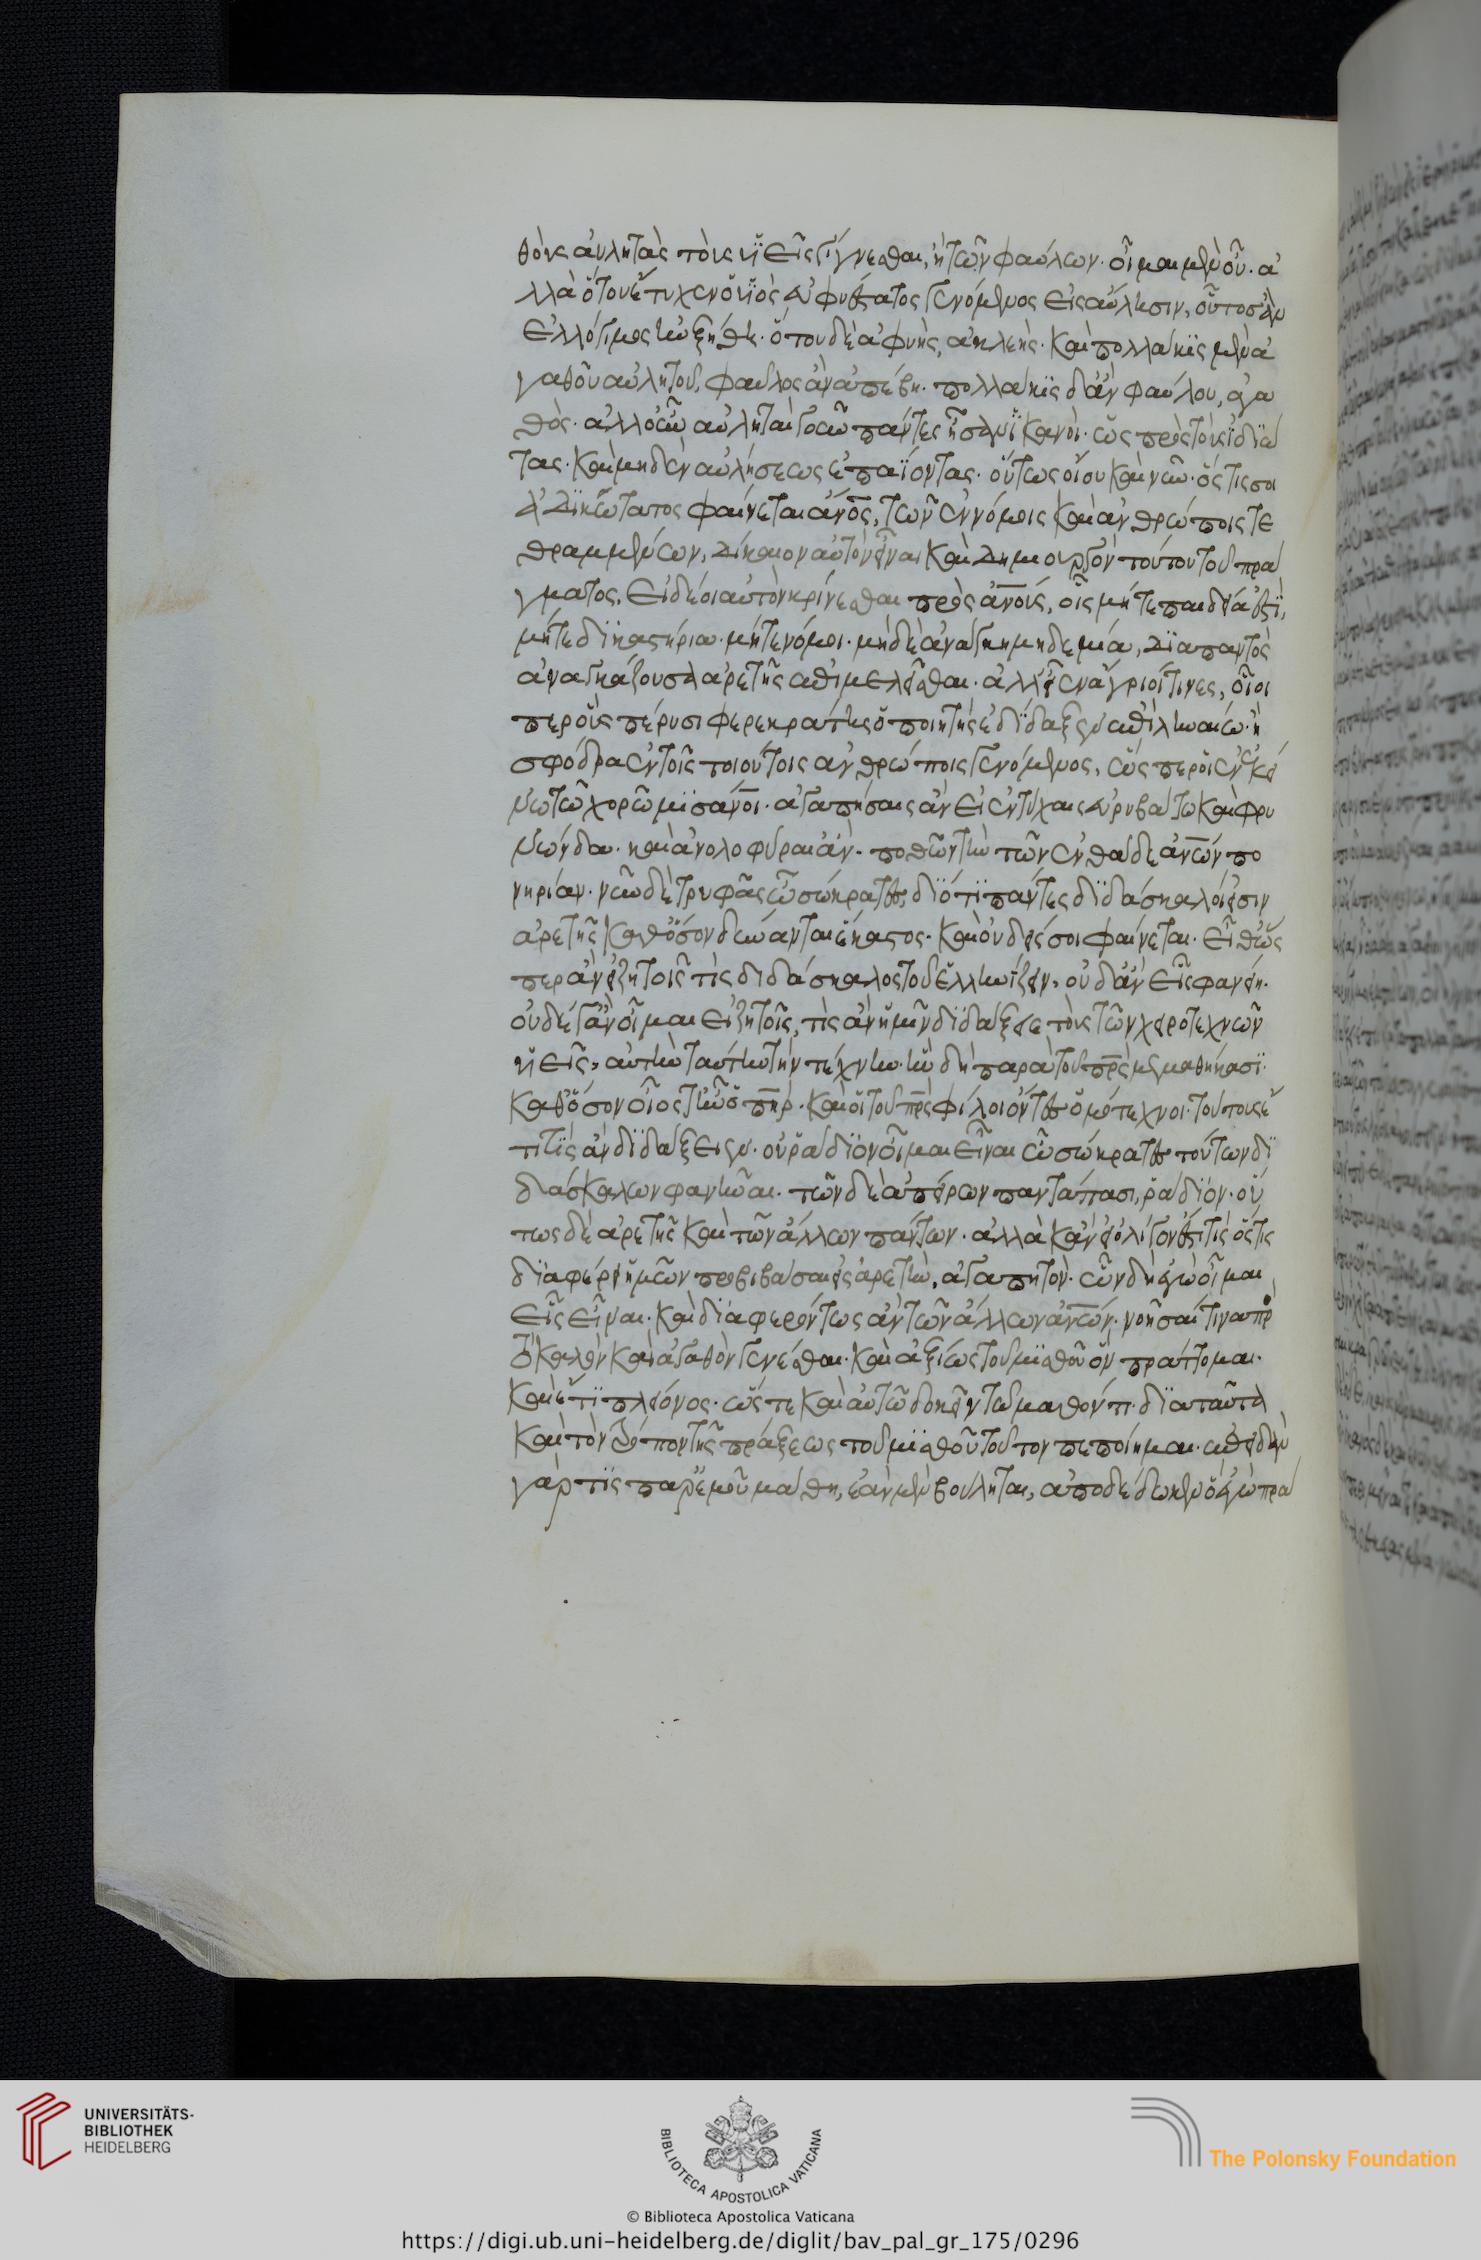 θοὺς αὐλητὰς τοὺς υἱεῖς γίγνεσθαι, ἢ τῶν φαύλων. οἶμαι μὲν οὔ. ἀ
λλὰ ὅτου ἔτυχεν ὁ υἱὸς εὐφυέστατος γενόμενος εἰς αὔλησιν, οὗτος ἂν
ἐλλόγιμος ηὐξήθη. ὅτου δὲ ἀφυὴς, ἀκλεής. καὶ πολλάκις μὲν ἀ
γαθοῦ αὐλητοῦ, φαῦλος ἂν ἀπέβη. πολλάκις δ' ἂν φαύλου, ἀγα
θὸς. ἀλλ' οὖν αὐληταὶ γοῦν πάντες ἦσαν ἱκανοὶ. ὡς πρὸς τοὺς ἰδιώ
τας. καὶ μηδὲν αὐλήσεως ἐπαΐοντας. οὕτως οἴου καὶ νῦν. ὅστις σοι
ἀδικώτατος φαίνεται ἄνος, τῶν ἐν νόμοις καὶ ἀνθρώποις τε
θραμμένων, δίκαιον αὐτὸν εἶναι καὶ δημιουργὸν τούτου τοῦ πρά
γματος. εἰ δέοι αὐτὸν κρίνεσθαι πρὸς ἀνους, οἷς μήτε παιδεία ἐστὶ,
μήτε δικαστήρια. μήτε νόμοι. μὴδὲ ἀνάγκη μηδεμία, διαπαντὸς
ἀναγκάζουσα ἀρετῆς ἐπιμελεῖσθαι. ἀλλ' εἶεν ἄγριοί τινες, οἷοι
περ οὓς πέρυσι φερεκράτης ὁ ποιητὴς ἐδίδαξεν ἐπὶ ληναίω. ἢ
σφόδρα ἐν τοῖς τοιούτοις ἀνθρώποις γενόμενος, ὥσπερ οἱ ἐν ἐκεί
νω τῶ χορῶ μισάνοι. ἀγαπήσαις ἂν εἰ ἐντύχοις εὐρυβάτω καὶ φρυ
νώνδα. καὶ ἀνολοφύραι ἂν. ποθῶν τὴν τῶν ἐνθάδε ἀνων πο
νηρίαν. νῦν δὲ τρυφᾶς ὦ σώκρατες, διότι πάντες διδάσκαλοί εἰσιν
ἀρετῆς καθόσον δύνανται ἕκαστος. καὶ οὐδείς σοι φαίνεται. εἶθ' ὥς
περ ἂν εἰ ζητοῖς τίς διδάσκαλος τοῦ ἑλληνίζειν, οὐδ' ἂν εἷς φανείη.
οὐδέ γ' ἂν οἶμαι εἰ ζητοῖς, τίς ἂν ἡμῖν διδάξειε τοὺς τῶν χειροτεχνῶν
υἱεῖς, αὐτὴν ταύτην τὴν τέχνην. ἣν δὴ παρὰ τοῦ πρς μεμαθήκασι.
καθόσον οἷός τ' ἦν ὁ πηρ. καὶ οἱ τοῦ πρς φίλοι ὄντες ὁμότεχνοι. τούτους ἔ
τι τίς ἂν διδάξειεν. οὐ ῥάδιον οἶμαι εἶναι ὦ σώκρατες τούτων δι
δάσκαλον φανῆναι. τῶν δὲ ἀπείρων παντάπασι, ῥάδιον. οὕ
τως δὲ ἀρετῆς καὶ τῶν ἄλλων πάντων. ἀλλὰ κἂν εἰ ὀλίγον ἐστί τις ὅστις
διαφέρει ἡμῶν προβιβάσαι εἰς ἀρετὴν, ἀγαπητὸν. ὧν δὴ ἐγὼ οἶμαι
εἷς εἶναι. καὶ διαφερόντως ἂν τῶν ἄλλων ἀνων. νοῆσαί τινα πρ
ὸς τὸ καλὸν καὶ ἀγαθὸν γενέσθαι. καὶ ἀξίως τοῦ μισθοῦ ὃν πράττομαι.
καὶ ἔτι πλείονος. ὥστε καὶ αὐτῶ δοκεῖν τῶ μαθόντι. διὰ ταῦτα
καὶ τὸν τρόπον τῆς πράξεως τοῦ μισθοῦ τοῦτον πεποίημαι. ἐπειδὰν
γάρ τις παρ' ἐμοῦ μάθη, ἐὰν μὲν βούληται, ἀποδέδωκεν ὃ ἐγὼ πρά
UNIVERSITÄTS-
BIBLIOTHEK
HEIDELBERG
BIBLIOTECA APOSTOLICA VATICANA
The Polonsky Foundation
© Biblioteca Apostolica Vaticana
https://digi.ub.uni-heidelberg.de/diglit/bav_pal_gr_175/0296